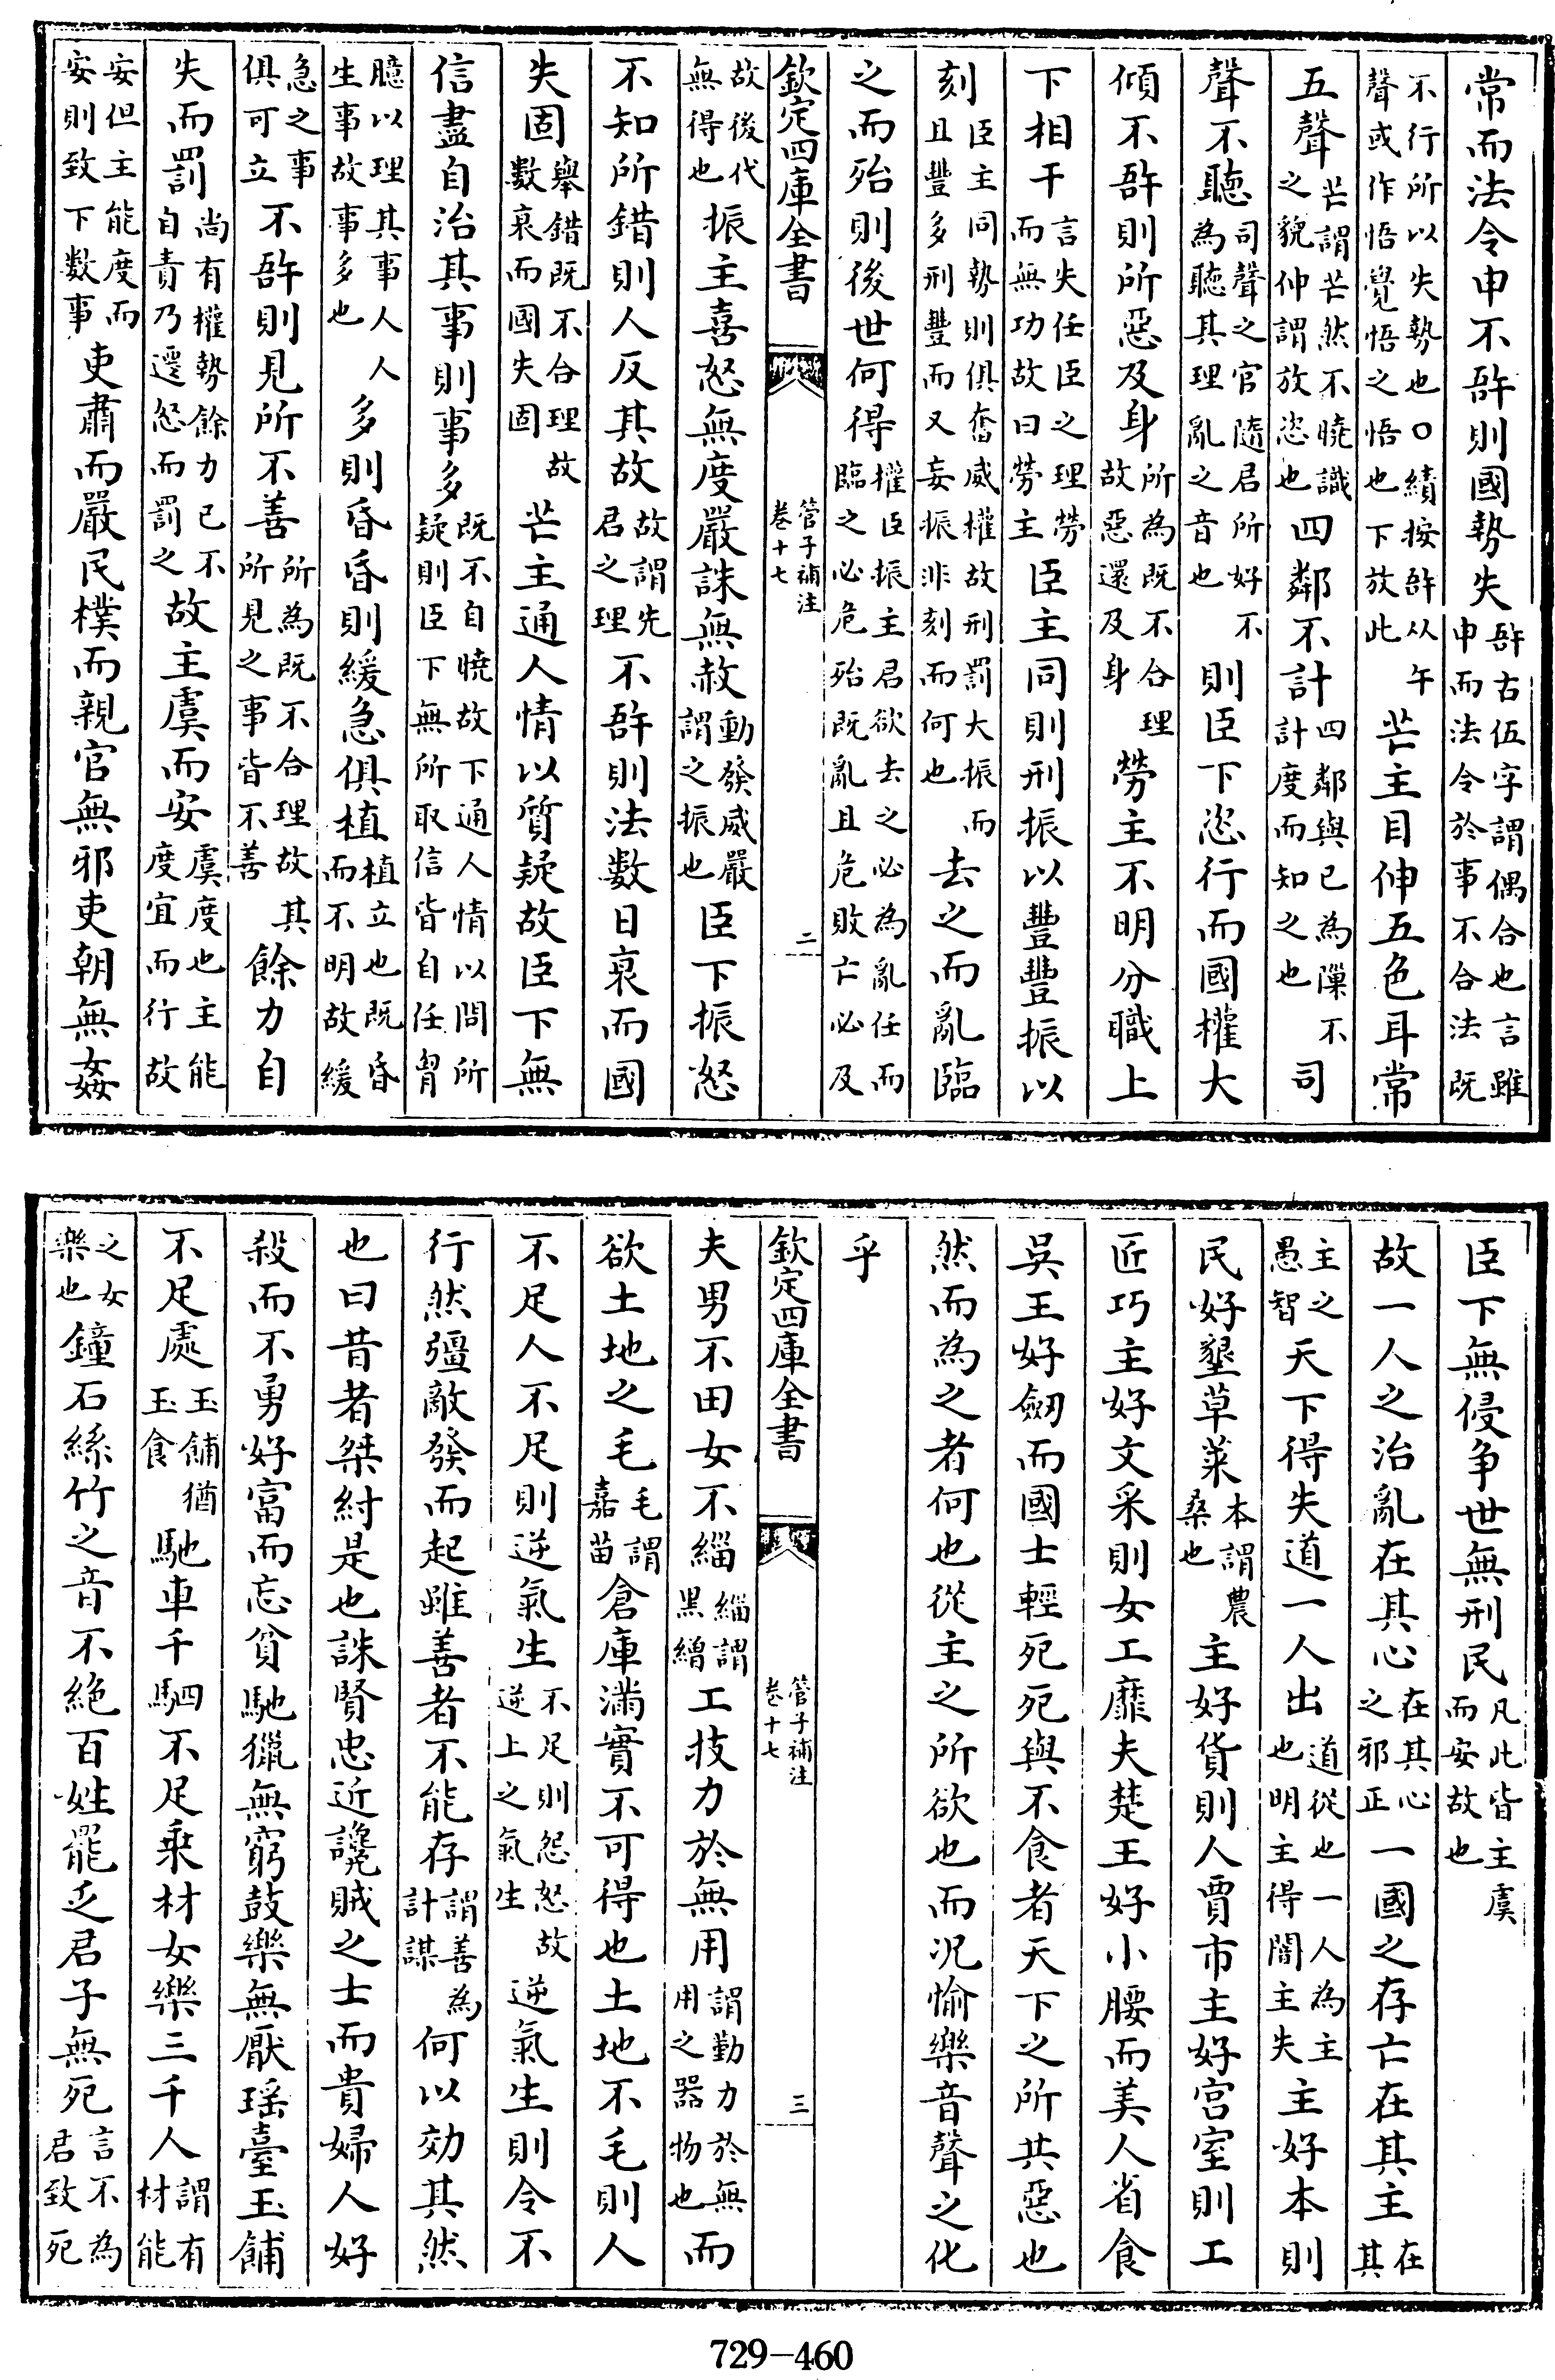 常而法令申不䛠則國勢失䛠古伍字謂偶合也言雖申而法令於事不合法既
不行所以失勢也○績按䛠从午聲或作悟覺悟之悟也下放此芒主目伸五色耳常
五聲芒謂芒然不曉識之貌伸謂放恣也四鄰不計四鄰與已為隟不計度而知之也司
聲不聽司聲之官隨君所好不為聽其理亂之音也則臣下恣行而國權大
傾不䛠則所惡及身所為既不合理故惡還及身勞主不明分職上
下相干言失任臣之理勞而無功故曰勞主臣主同則刑振以豐豐振以
刻臣主同勢則俱奮威權故刑罰大振而且豐多刑豐而又妄振非刻而何也去之而亂臨
之而殆則後世何得權臣振主君欲去之必為亂任而臨之必危殆既亂且危敗亡必及
欽定四庫全書 管子補注 卷十七 二
故後代無得也振主喜怒無度嚴誅無赦動發威嚴謂之振也臣下振怒
不知所錯則人反其故故謂先君之理不䛠則法數日衰而國
失固舉錯既不合理故數衰而國失固芒主通人情以質疑故臣下無
信盡自治其事則事多既不自曉故下通人情以問所疑則臣下無所取信皆自任胷
臆以理其事人人生事故事多也多則昏昏則緩急俱植植立也既昏而不明故緩
急之事俱可立不䛠則見所不善所為既不合理故其所見之事皆不善餘力自
失而罰尚有權勢餘力已不自責乃遷怒而罰之故主虞而安虞度也主能度宜而行故
安但主能度而安則致下數事吏肅而嚴民樸而親官無邪吏朝無姦
臣下無侵争世無刑民凡此皆主虞而安故也
故一人之治亂在其心在其心之邪正一國之存亡在其主在其
主之愚智天下得失道一人出道從也一人為主也明主得闇主失主好本則
民好墾草萊本謂農桑也主好貨則人賈市主好宫室則工
匠巧主好文采則女工靡夫楚王好小腰而美人省食
吳王好劒而國士輕死死與不食者天下之所共惡也
然而為之者何也從主之所欲也而况愉樂音聲之化
乎
欽定四庫全書 管子補注 卷十七 三
夫男不田女不緇緇謂黑繒工技力於無用謂勤力於無用之器物也而
欲土地之毛毛謂嘉苗倉庫滿實不可得也土地不毛則人
不足人不足則逆氣生不足則怨怒故逆上之氣生逆氣生則令不
行然彊敵發而起雖善者不能存謂善為計謀何以効其然
也曰昔者桀紂是也誅賢忠近讒賊之士而貴婦人好
殺而不勇好富而忘貧馳獵無窮鼓樂無厭瑶臺玉餔
不足處玉餔猶玉食馳車千駟不足乘材女樂三千人謂有材能
之女樂也鐘石絲竹之音不絶百姓罷乏君子無死言不為君致死
729-460